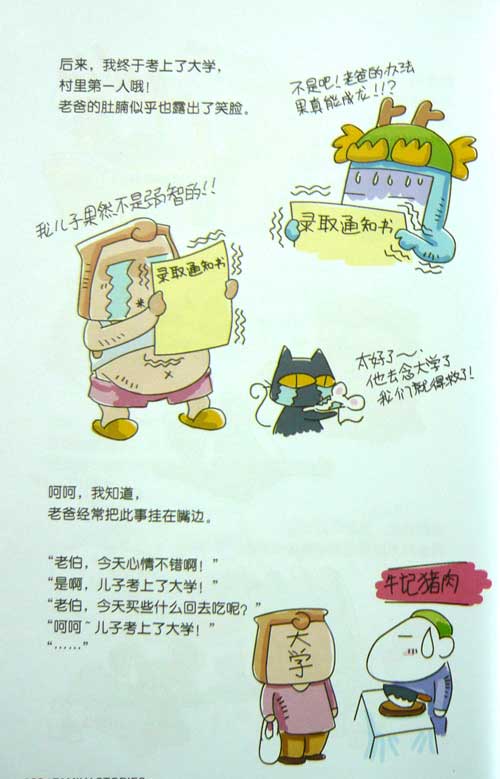 后来，我终于考上了大学，
村里第一人哦！
老爸的肚腩似乎也露出了笑脸。
不是吧！老爸的办法
果真能成龙!!?
录取通知书
我儿子果然不是弱智的!!
录取通知书
太好了～
他去念大学了
我们就得救了!
呵呵，我知道，
老爸经常把此事挂在嘴边。
“老伯，今天心情不错啊！”
“是啊，儿子考上了大学！”
“老伯，今天买些什么回去吃呢？”
“呵呵～儿子考上了大学！”
“……”
牛记猪肉
大学